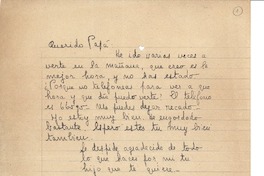 Querido Papá
He ido varias veces a
verte en la mañana, que creo es la
mejor hora, y no has estado
¿Porque no telefoneas para ver a que
hora y que día puedo verte? El teléfono
es 66090. Me puedes dejar recado.
Yo estoy muy bien. He engordado
bastante. Espero estés tu muy bien
también.
Se despide agradecido de todo
lo que haces por mi tu
hijo que te quiere